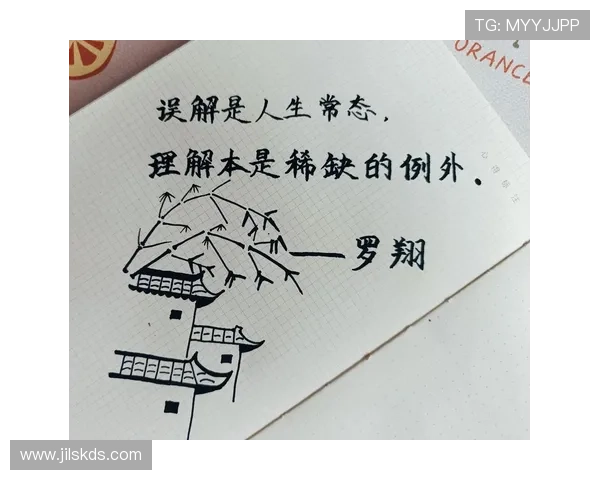 TG: MYYJJPP
ORANGE
误解是人生常态，
理解本是稀缺的例外．
——罗翔
www.jilskds.com